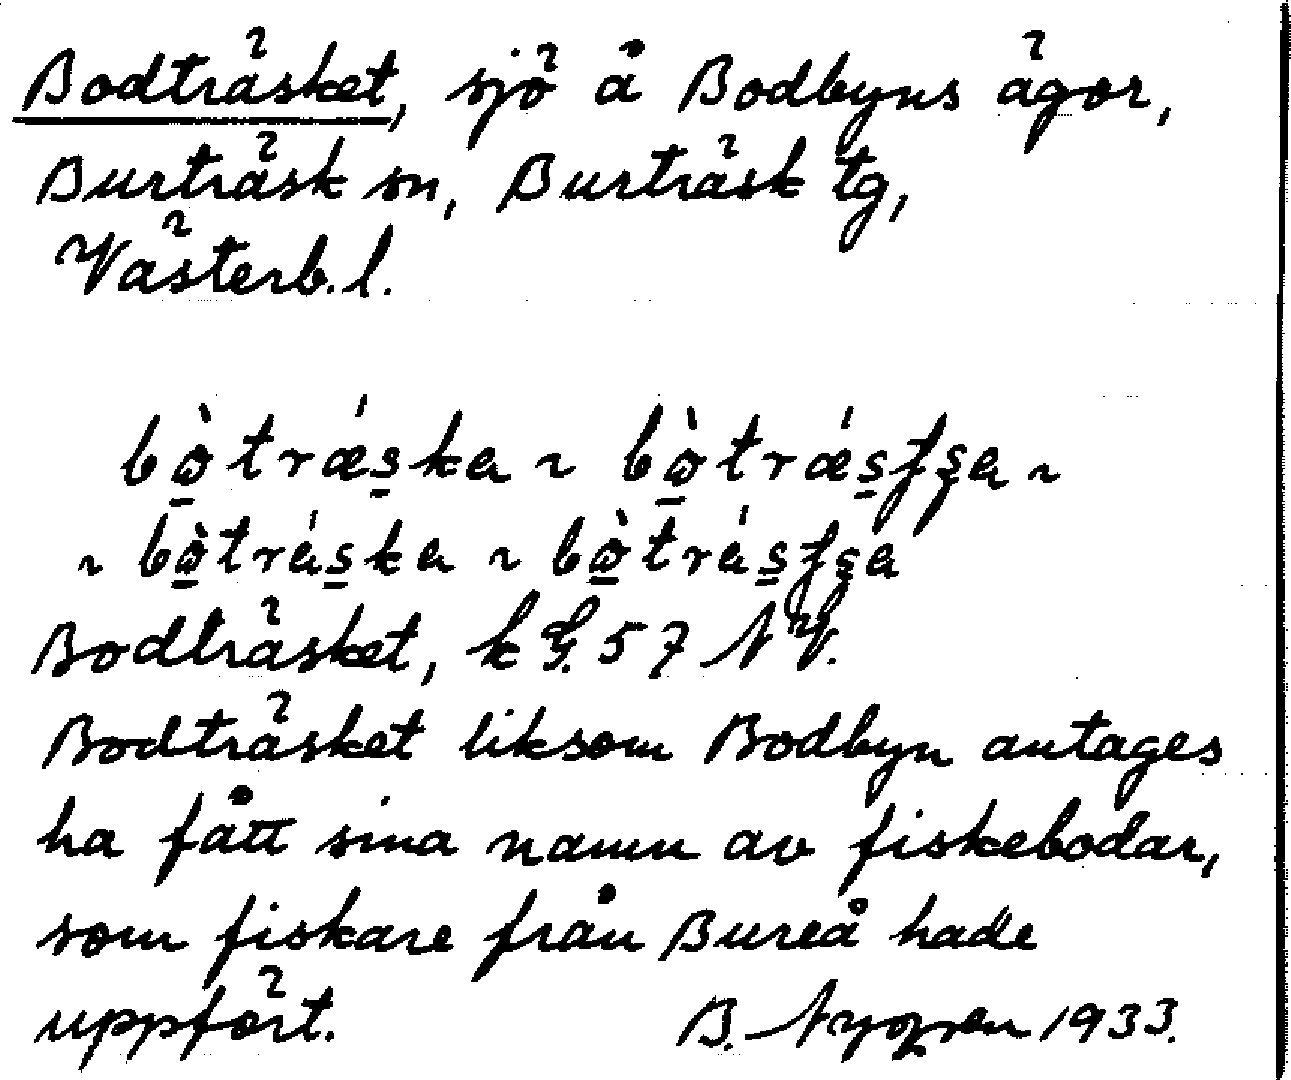 Bodträsket, sjö å Bodbyns ägor,
Burträsk sn, Burträsk tg,
Västerb.l.
bò̱trǽs̱ka ~ bò̱trǽs̱ʃs̨a ~
~ bò̱trás̱ka ~ bò̱trás̱ʃs̨a
Bodträsket, kG. 57 NV.
Bodträsket liksom Bodbyn antages
ha fått sina namn av fiskebodar,
som fiskare från Bureå hade
uppfört. B. Nygren 1933.